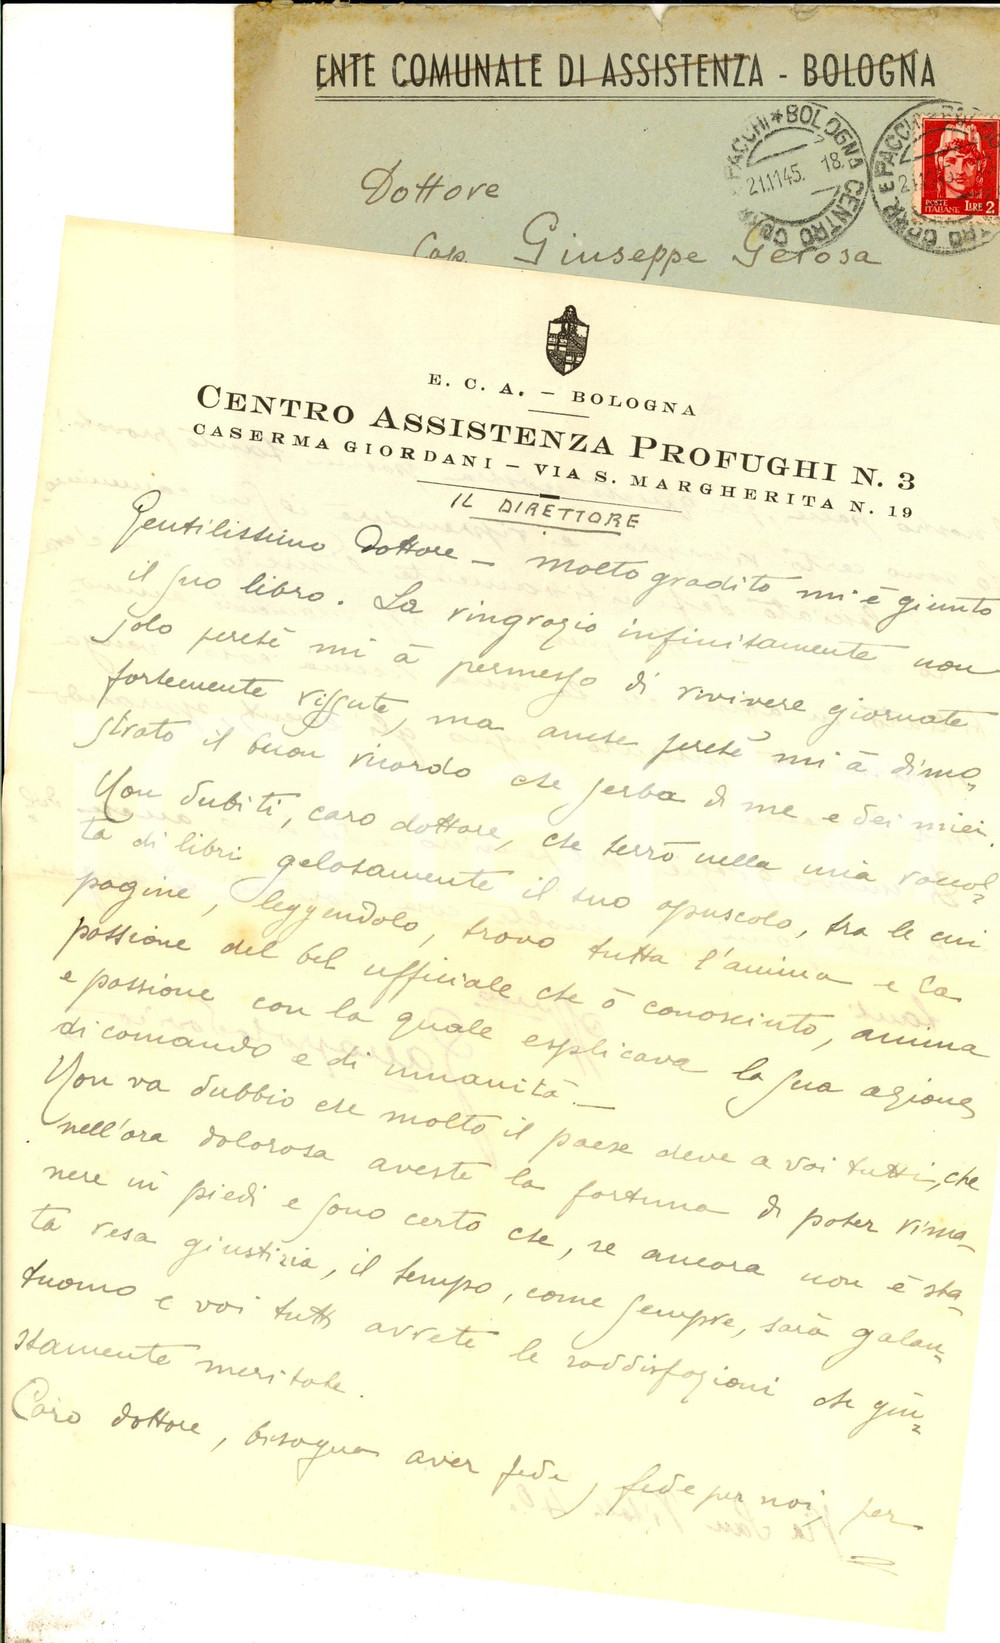 ENTE COMUNALE DI ASSISTENZA - BOLOGNA
PACCHI * BOLOGNA CENTRO CORR. E
21.11.45. 18
POSTE ITALIANE LIRE 2
Dottore
Cap. Giuseppe Gerosa
E. C. A. - BOLOGNA
CENTRO ASSISTENZA PROFUGHI N. 3
CASERMA GIORDANI - VIA S. MARGHERITA N. 19
IL DIRETTORE
Gentilissimo Dottore - molto gradito mi è giunto
il suo libro. La ringrazio infinitamente non
solo perché mi à permesso di rivivere giornate
fortemente vissute, ma anche perché mi à dimo-
strato il buon ricordo che serba di me e dei miei.
Non dubiti, caro dottore, che terrò nella mia raccol-
ta di libri gelosamente il suo opuscolo, tra le cui
pagine, leggendolo, trovo tutta l'anima e la
passione del bel ufficiale che ò conosciuto, anima
e passione con la quale esplicava la sua azione
di comando e di umanità. -
Non va dubbio che molto il paese deve a voi tutti, che
nell'ora dolorosa aveste la fortuna di poter rima-
nere in piedi e sono certo che, se ancora non è sta-
ta resa giustizia, il tempo, come sempre, sarà galan-
tuomo e voi tutti avrete le soddisfazioni che giu-
stamente meritate.
Caro dottore, bisogna aver fede, fede per noi, per